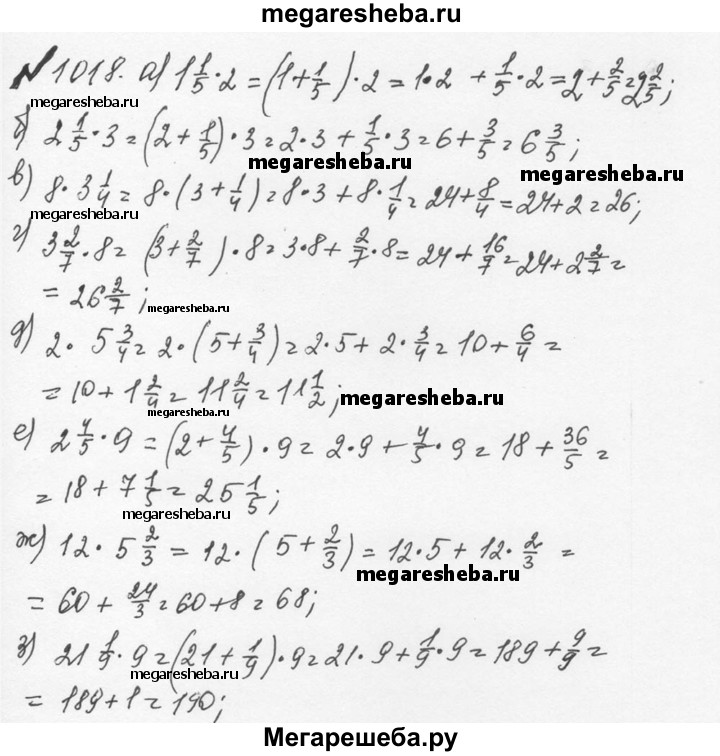 megaresheba.ru
№1018. а) 1 1/5 · 2 = (1 + 1/5) · 2 = 1 · 2 + 1/5 · 2 = 2 + 2/5 = 2 2/5;
megaresheba.ru
б) 2 1/5 · 3 = (2 + 1/5) · 3 = 2 · 3 + 1/5 · 3 = 6 + 3/5 = 6 3/5;
megaresheba.ru megaresheba.ru
в) 8 · 3 1/4 = 8 · (3 + 1/4) = 8 · 3 + 8 · 1/4 = 24 + 8/4 = 24 + 2 = 26;
megaresheba.ru
г) 3 2/7 · 8 = (3 + 2/7) · 8 = 3 · 8 + 2/7 · 8 = 24 + 16/7 = 24 + 2 2/7 =
= 26 2/7;
megaresheba.ru
д) 2 · 5 3/4 = 2 · (5 + 3/4) = 2 · 5 + 2 · 3/4 = 10 + 6/4 =
= 10 + 1 2/4 = 11 2/4 = 11 1/2;
megaresheba.ru megaresheba.ru
е) 2 4/5 · 9 = (2 + 4/5) · 9 = 2 · 9 + 4/5 · 9 = 18 + 36/5 =
= 18 + 7 1/5 = 25 1/5;
megaresheba.ru
ж) 12 · 5 2/3 = 12 · (5 + 2/3) = 12 · 5 + 12 · 2/3 =
megaresheba.ru
= 60 + 24/3 = 60 + 8 = 68;
з) 21 1/9 · 9 = (21 + 1/9) · 9 = 21 · 9 + 1/9 · 9 = 189 + 9/9 =
megaresheba.ru
= 189 + 1 = 190;
Мегарешеба.ру